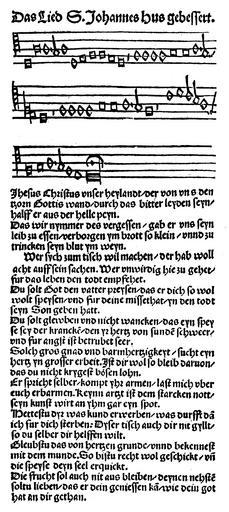 Das Lied S. Johannes Hus gebessert.
Jhesus Christus vnser heylandt/ der von vns den
tzorn Gottis wand/ durch das bitter leyden seyn/
halff er aus der helle peyn.
Das wir nymmer des vergessen/ gab er vns seyn
leib zu essen/ verborgen ym brott so klein/ vnnd zu
trincken seyn blut ym weyn.
Wer sych zum tisch wil machen/ der hab woll
acht auff sein sachen. Wer vnwirdig hie zu gehet/
fur das leben den todt empfehet.
Du solt Got den vatter preysen/ das er dich so wol
wolt speysen/ vnd fur deine missethat/ yn den todt
seyn Son geben hatt.
Du solt glewben vnd nicht wancken/ das eyn spey
se sey der krancken/ den yr hertz von sunden schweer/
vnd fur angst ist betrubet seer.
Solch gros gnad vnd barmhertzigkeyt/ sucht eyn
hertz yn grosser erbeit. Ist dir wol so bleib daruon/
das du nicht krygest bosen lohn.
Er spricht selber/ kompt yhr armen/ last mich vber
euch erbarmen. Keyn artzt ist dem starcken nott/
seyn kunst wirt an yhm gar eyn spot.
Hettestu dyr was kund erwerben/ was durfft dan
ich fur dich sterben: Dyser tisch auch dir nit gylt/
so du selber dir helffen wilt.
Glaubstu das von hertzen grunde/ vnnd bekennest
mit dem munde. So bistu recht wol geschickt/ vn
die speyse deyn seel erquickt.
Die frucht sol auch nit aus bleiben/ deynen nehste
soltu lieben/ das er dein geniessen kan/ wie dein got
hat an dir gethan.